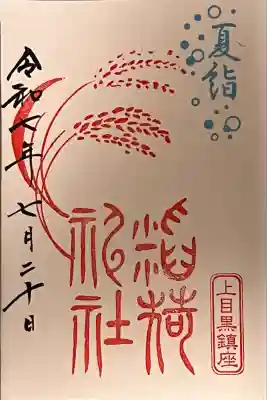 夏詣
稲荷
神社
上目黒鎮座
令和七年七月二十日